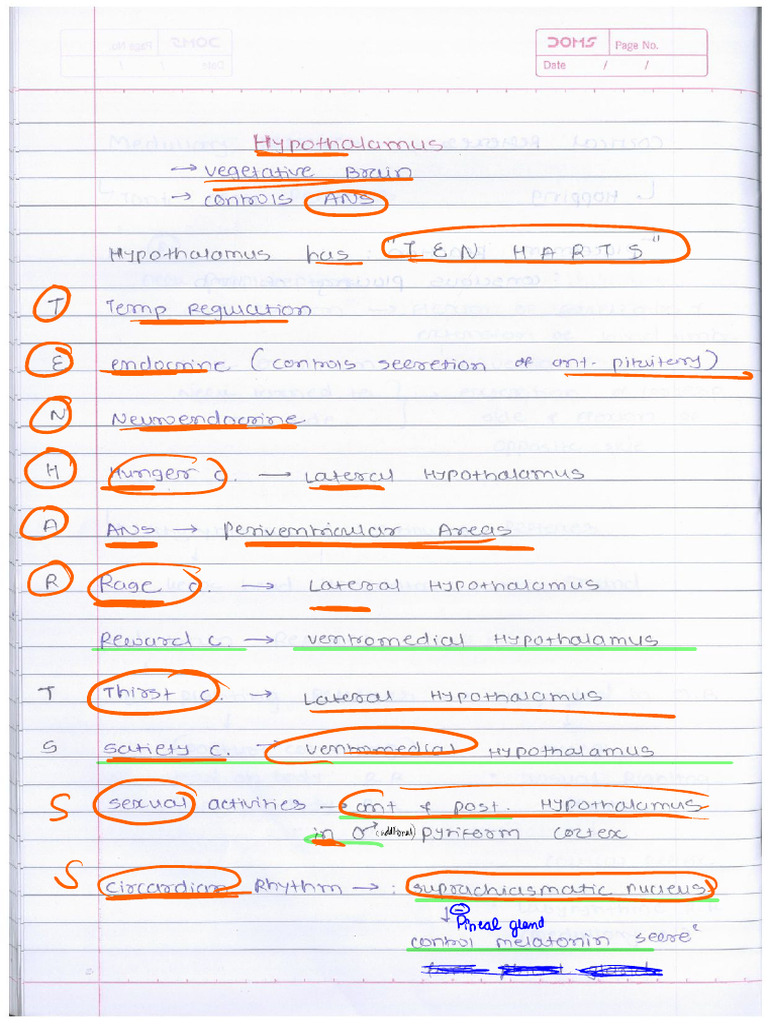 DOMS Page No.
Date / /
Hypothalamus
→ vegetative Brain
→ controls ANS
Hypothalamus has "TEN HARTS"
T Temp Regulation
E endocrine (controls secretion of ant. pituitery)
N Neuroendocrine
H Hunger c. → Lateral Hypothalamus
A ANS → Periventricular Areas
R Rage c. → Lateral Hypothalamus
Reward c. → ventromedial Hypothalamus
T Thirst c. → Lateral Hypothalamus
S satiety c. → ventromedial Hypothalamus
S sexual activities → ant & post. Hypothalamus
in ♂ (additional) pyriform cortex
S circardian Rhythm → : suprachiasmatic nucleus
↓ ⊖ Pineal gland
control melatonin secreⁿ